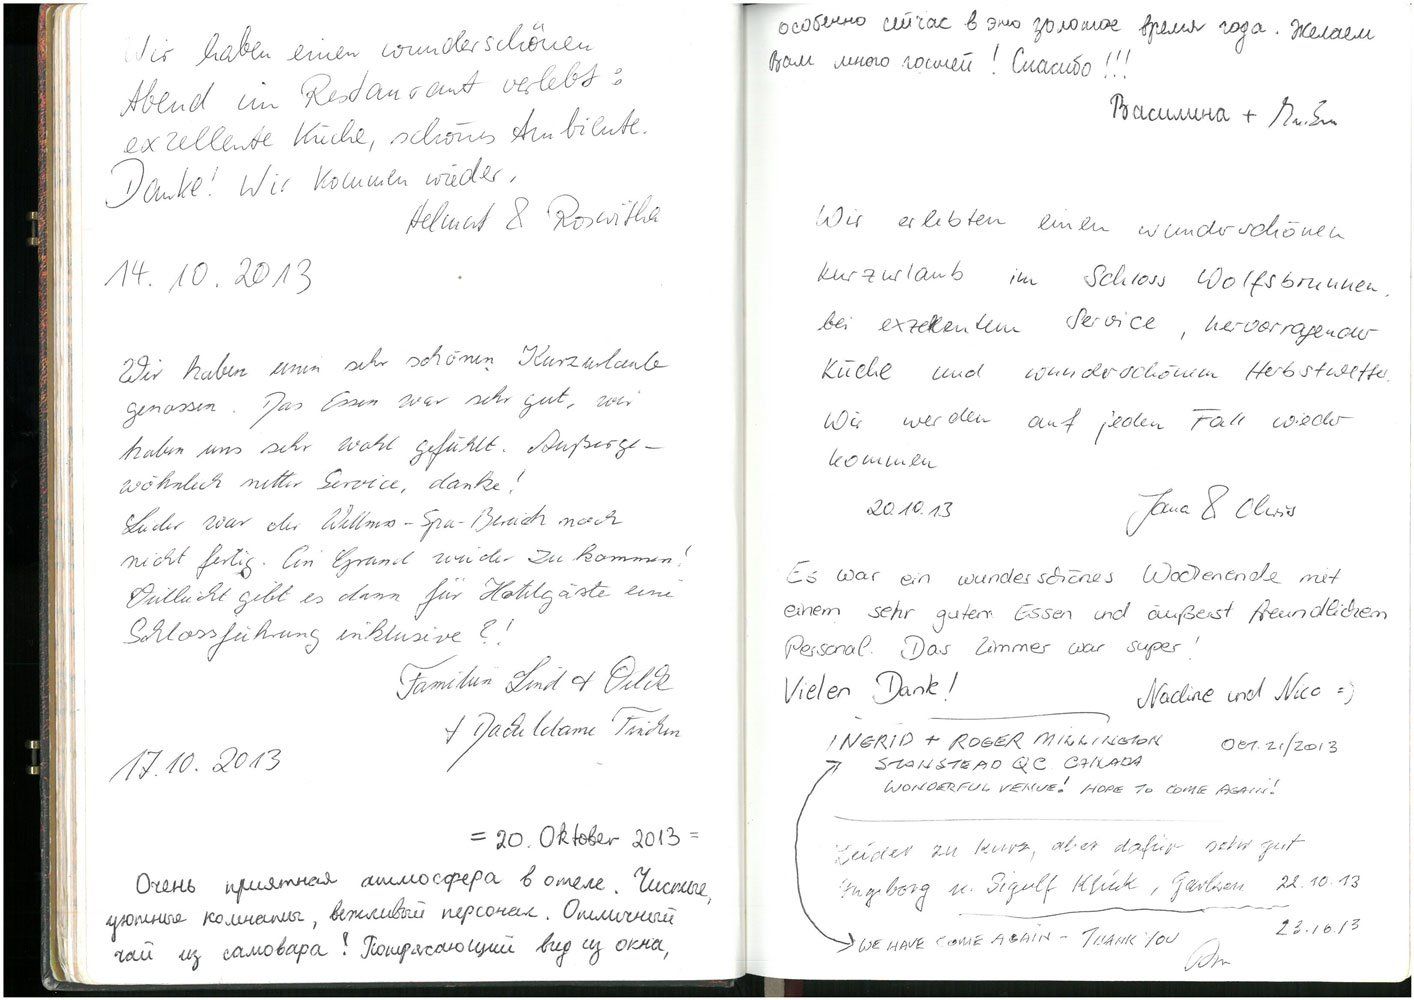 Wir haben einen wunderschönen
Abend im Restaurant verlebt:
exzellente Küche, schönes Ambiente.
Danke! Wir kommen wieder.
Helmut & Roswitha
14. 10. 2013
Wir haben einen sehr schönen Kurzurlaub
genossen. Das Essen war sehr gut, wir
haben uns sehr wohl gefühlt. Außerge-
wöhnlich netter Service, danke!
Leider war der Wellness-Spa-Bereich noch
nicht fertig. Ein Grund wieder zu kommen!
Vielleicht gibt es dann für Hotelgäste eine
Schlossführung inklusive?!
Familien Lind +
+ Dackeldame
17.10. 2013
= 20. Oktober 2013 =
Очень приятная атмосфера в отеле. Чистые,
уютные комнаты, вежливый персонал. Отличный
чай из самовара! Потрясающий вид из окна,
особенно сейчас в это золотое время года. Желаем
Вам много гостей! Спасибо!!!
Василина +
Wir erlebten einen wunderschönen
Kurzurlaub im Schloss Wolfsbrunnen,
bei exzellentem Service, hervorragender
Küche und wunderschönem Herbstwetter.
Wir werden auf jeden Fall wieder
kommen
20.10.13 Jana & Chris
Es war ein wunderschönes Wochenende mit
einem sehr gutem Essen und äußerst freundlichem
Personal. Das Zimmer war super!
Vielen Dank! Nadine und Nico =)
INGRID + ROGER MILLINGTON OCT. 21/2013
STANSTEAD QC CANADA
WONDERFUL VENUE! HOPE TO COME AGAIN!
Leider zu kurz, aber dafür sehr gut
Ingeborg u. Sigulf Klick, 22.10.13
23.10.13
WE HAVE COME AGAIN - THANK YOU